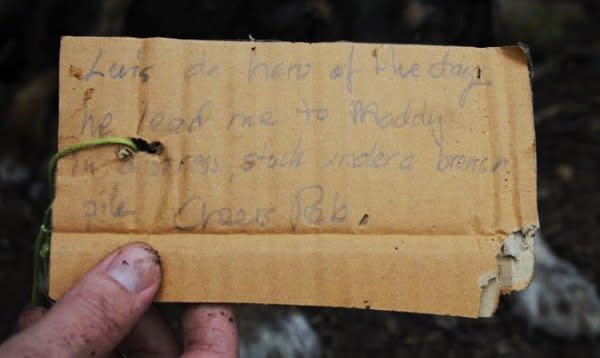 Luis da hero of the day
he lead me to Maddy
in distress, stuck under a branch
pile Cheers Rab.